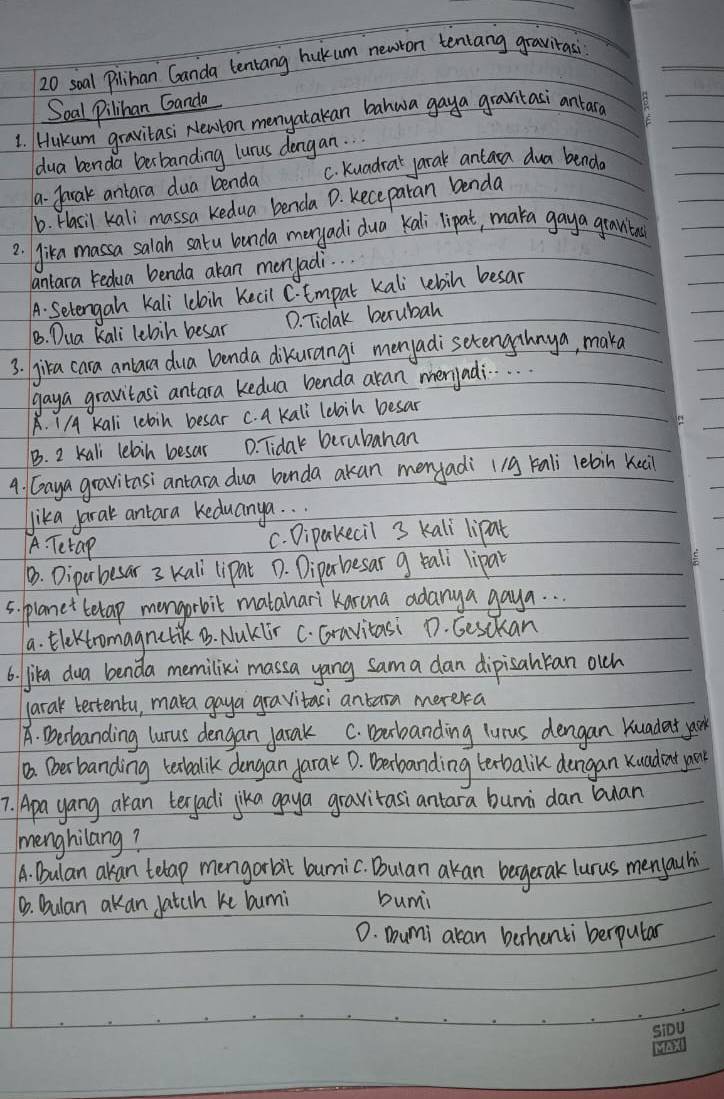 20 soal Pilihan Ganda tentang hukum newton tentang gravitasi:
Soal Pilihan Ganda
1. Hukum gravitasi Newton menyatakan bahwa gaya gravitasi antara
dua benda berbanding lurus dengan...
a. Jarak antara dua benda C. Kuadrat jarak antara dua benda
b. Hasil kali massa kedua benda D. kecepatan benda
2. Jika massa salah satu benda menjadi dua kali lipat, maka gaya gravitasi
antara kedua benda akan menjadi...
A. Setengah kali lebih kecil C. Empat kali lebih besar
B. Dua kali lebih besar D. Tidak berubah
3. jika cara antara dua benda dikurangi menjadi setengahnya, maka
gaya gravitasi antara kedua benda akan menjadi.....
A. 1/4 kali lebih besar C. 4 kali lebih besar
B. 2 kali lebih besar D. Tidak berubahan
4. Gaya gravitasi antara dua benda akan menjadi 1/9 kali lebih kecil
jika jarak antara keduanya...
A. Tetap C. Diperkecil 3 kali lipat
B. Diperbesar 3 kali lipat D. Diperbesar 9 kali lipat
5. planet tetap mengorbit matahari karena adanya gaya...
a. Elektromagnetik B. Nuklir C. Gravitasi D. Gesekan
6. jika dua benda memiliki massa yang sama dan dipisahkan oleh
jarak tertentu, maka gaya gravitasi antara mereka
A. Berbanding lurus dengan jarak C. berbanding lurus dengan kuadat jarak
B. Berbanding terbalik dengan jarak D. Berbanding terbalik dengan kuadrat jarak
7. Apa yang akan terjadi jika gaya gravitasi antara bumi dan bulan
menghilang?
A. Bulan akan tetap mengorbit bumi C. Bulan akan bergerak lurus menjauhi
B. Bulan akan jatuh ke bumi bumi
D. Bumi akan berhenti berputar
SiDU
MAXI